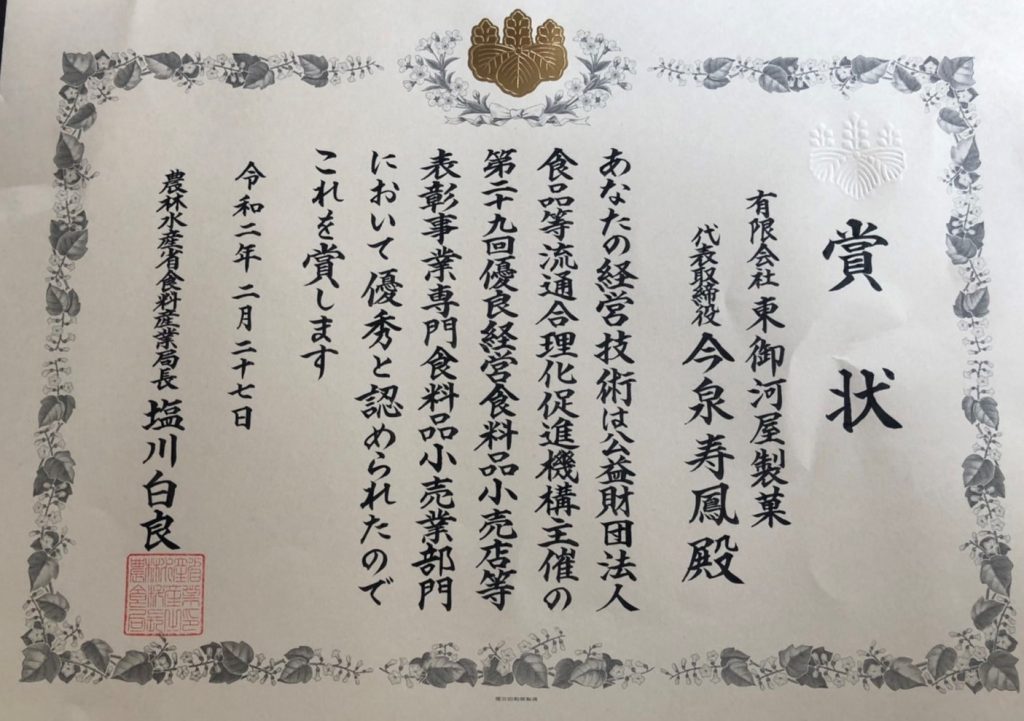 賞状
有限会社 東御河屋製菓
代表取締役 今泉寿鳳殿
あなたの経営技術は公益財団法人
食品等流通合理化促進機構主催の
第二十九回優良経営食料品小売店等
表彰事業専門食料品小売業部門
において優秀と認められたので
これを賞します
令和二年二月二十七日
農林水産省食料産業局長 塩川白良